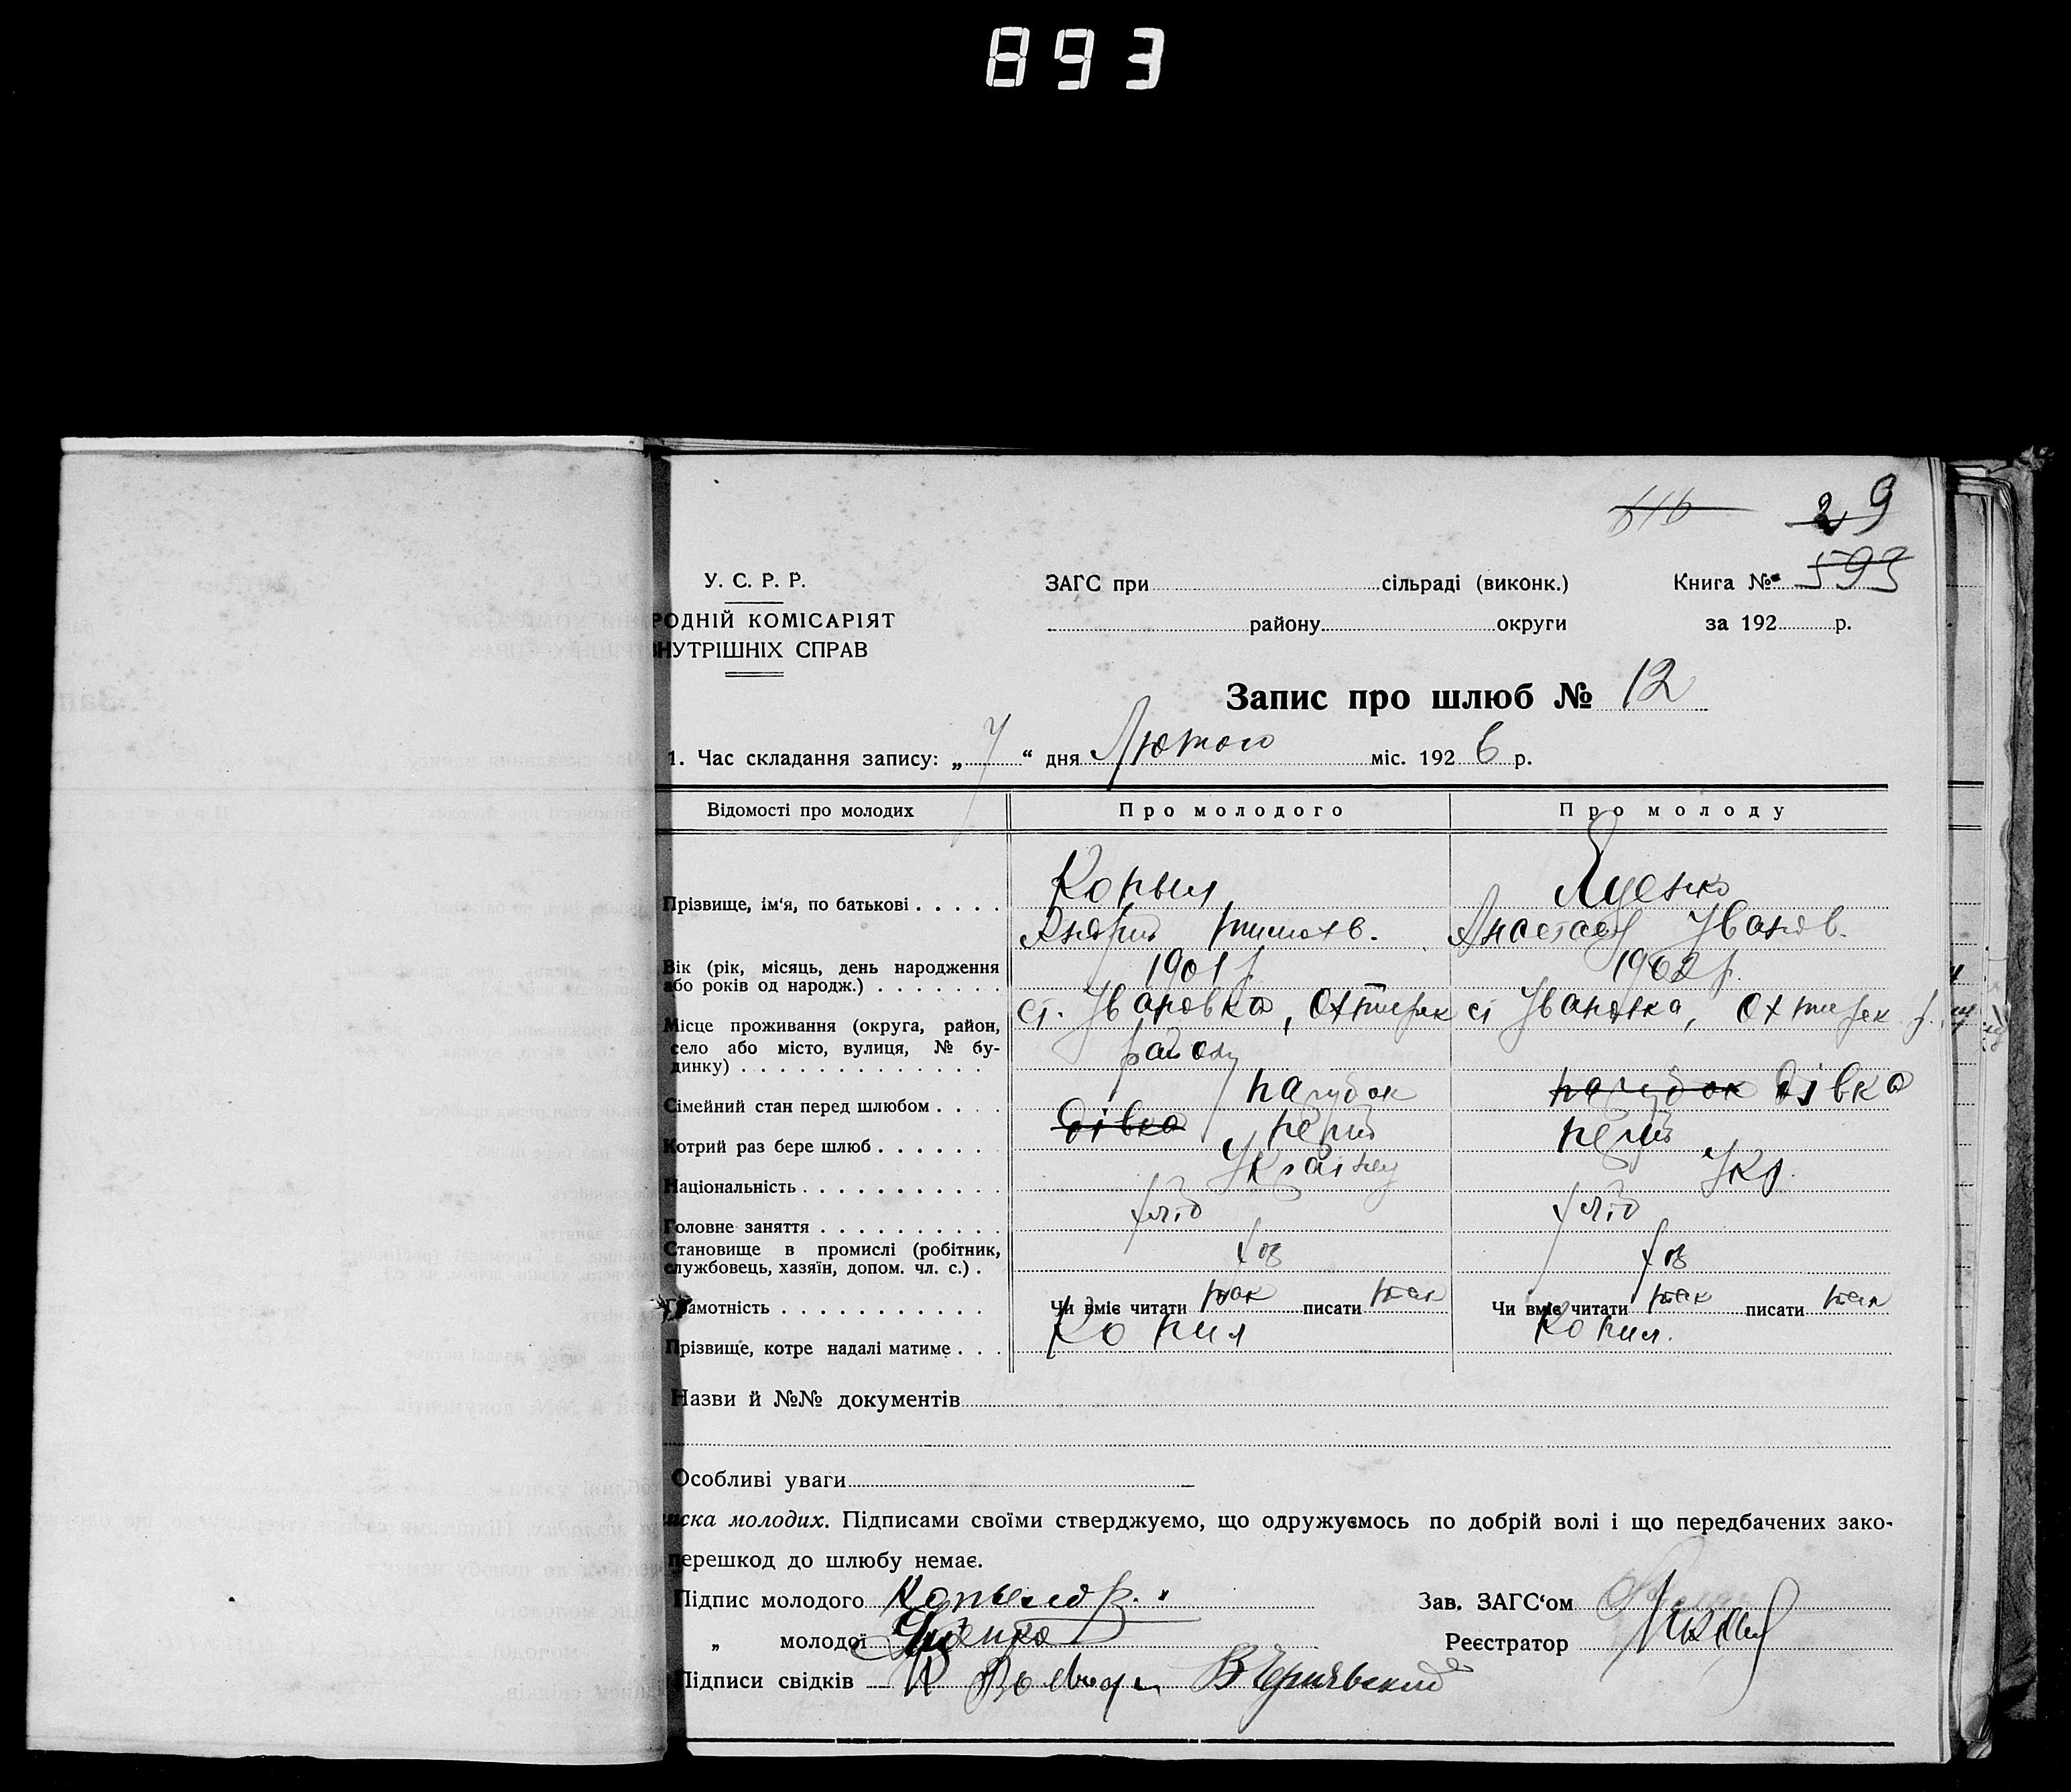 893
616
2 9
593
У. С. Р. Р.
РОДНІЙ КОМІСАРІЯТ
НУТРІШНІХ СПРАВ
ЗАГС при сільраді (виконк.)
району округи
Книга №
за 192 р.
Запис про шлюб № 12
1. Час складання запису: „ 7 “ дня Лютого міс. 192 6 р.
Відомості про молодих Про молодого Про молоду
Прізвище, ім'я, по батькові Копыл Яценко
Андрій Тимохв. Анастасія Іванів.
Вік (рік, місяць, день народження або років од народж.) 1901 р 1902 р.
Місце проживання (округа, район, село або місто, вулиця, № будинку) ст. Івановка, Охтирск ст Івановка, Охтирск р.
району
Сімейний стан перед шлюбом парубок парубок дівка
Котрий раз бере шлюб дівка перий перий
Національність Україну Укр.
Головне заняття хліб хліб
Становище в промислі (робітник, службовець, хазяїн, допом. чл. с.) хоз хоз
Грамотність Чи вміє читати так писати так Чи вміє читати так писати так
Прізвище, котре надалі матиме Копил Копил.
Назви й №№ документів
Особливі уваги
иска молодих. Підписами своїми стверджуємо, що одружуємось по добрій волі і що передбачених зако-
перешкод до шлюбу немає.
Підпис молодого Зав. ЗАГС‘ом
„ молодої Яценко Реєстратор
Підписи свідків В Чернявский